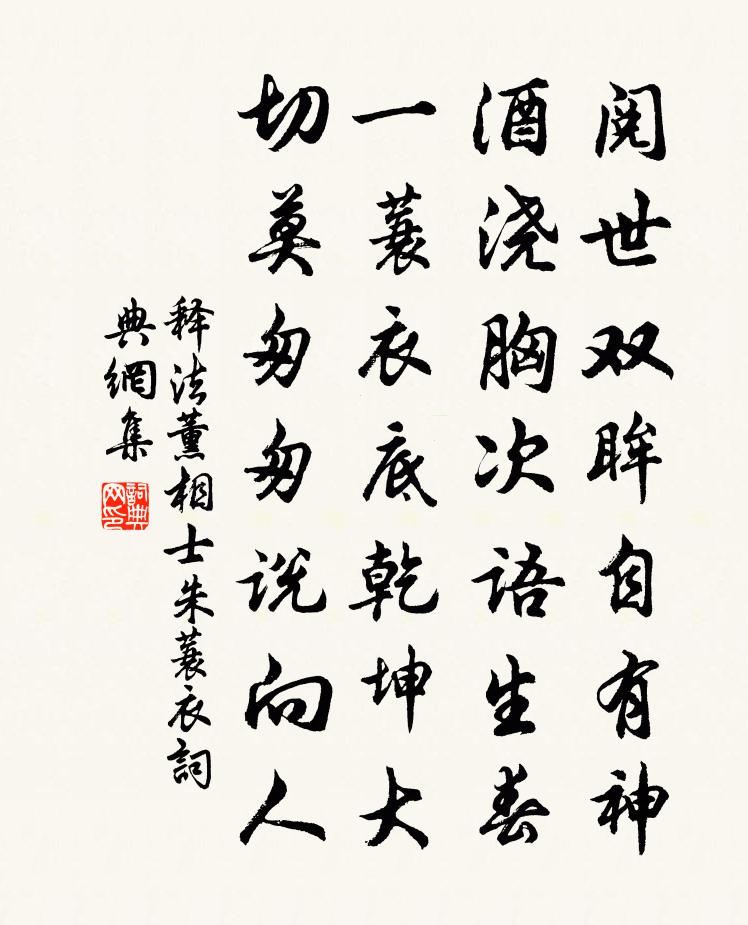 阅世双眸自有神
酒浇胸次语生春
一蓑衣底乾坤大
切莫匆匆说向人
释法薰相士朱蓑衣詞
典網集
詞典网印